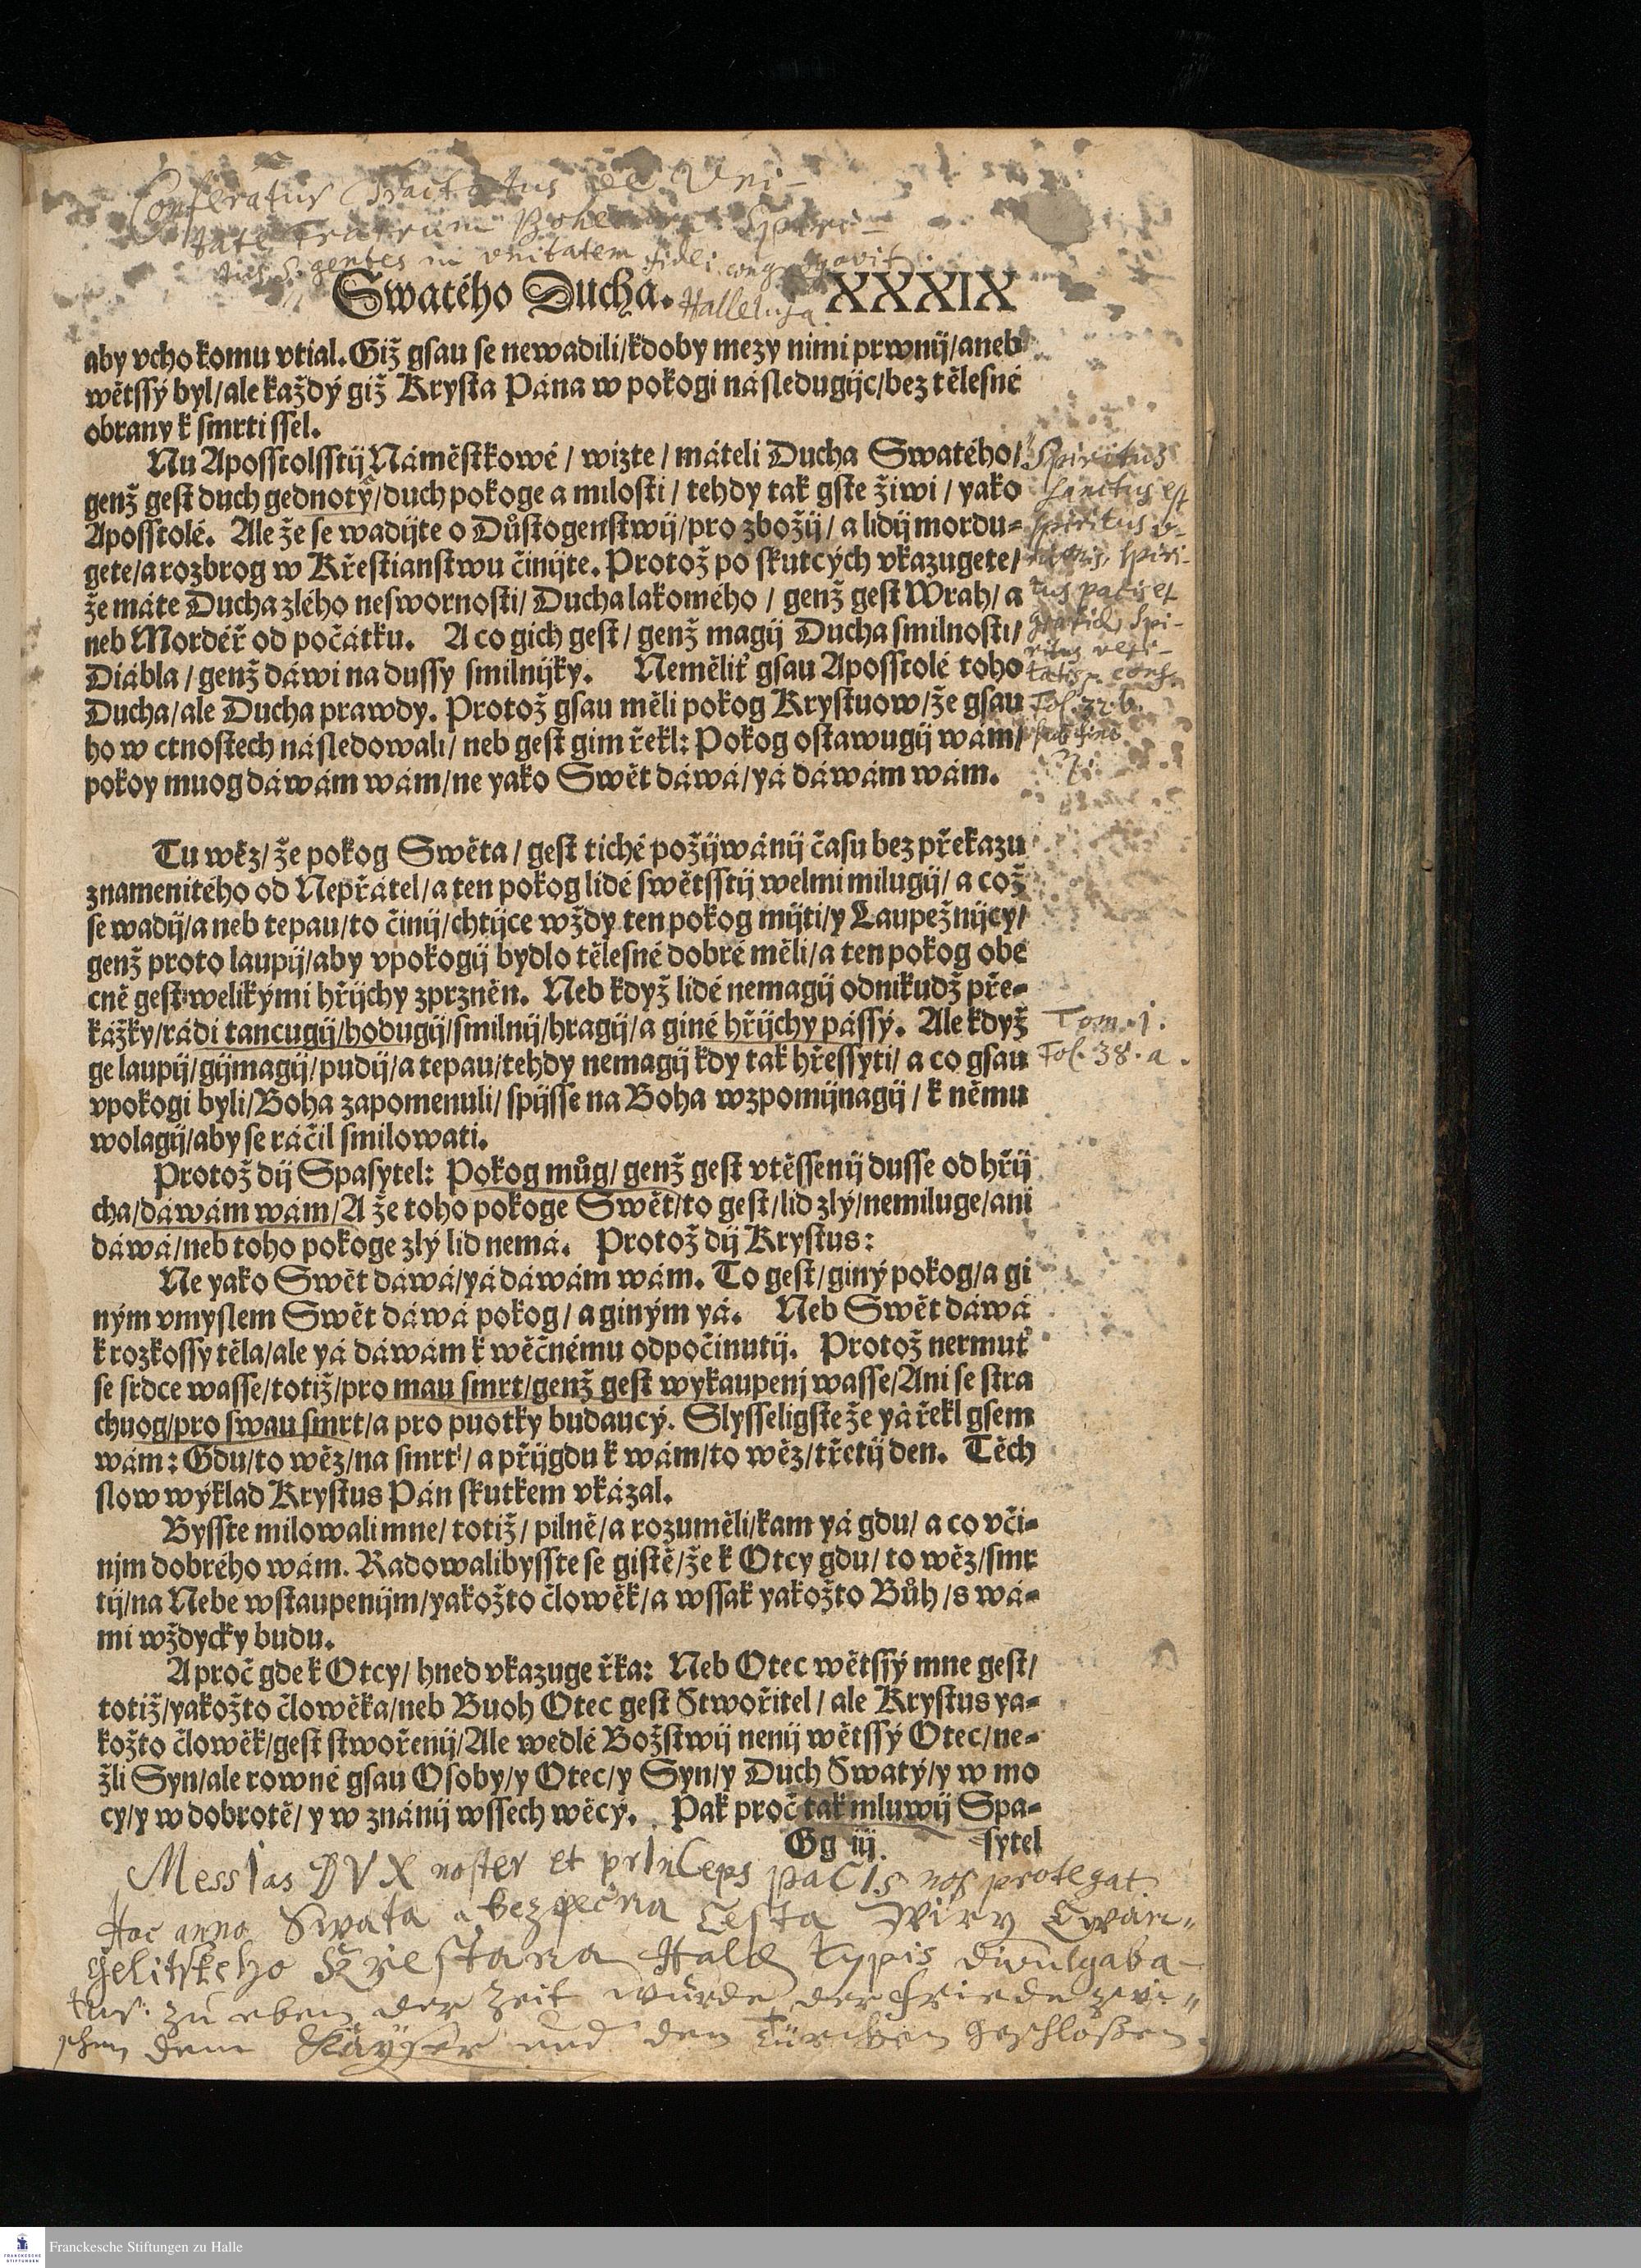 Conferatur Tractatus de Uni-
tate Fratrum
gentes in unitatem fidei congregavit.
Halleluja.
Swatého Ducha. XXXIX
aby vcho komu vtial. Giž gsau se newadili/kdoby mezy nimi prwnij/aneb
wětssý byl/ale každý giž Krysta Pána w pokogi následugijc/bez tělesné
obrany k smrti ssel.
Nu Aposstolsstij Náměstkowé/ wizte/ máteli Ducha Swatého/
genž gest duch gednoty/duch pokoge a milosti/ tehdy tak gste žiwi/ yako
Aposstolé. Ale že se wadijte o Důstogenstwij/pro zbožij/ a lidij mordu-
gete/a rozbrog w Křestianstwu činijte. Protož po skutcých vkazugete/
že máte Ducha zlého neswornosti/ Ducha lakomého / genž gest Wrah/ a
neb Mordéř od počátku. A co gich gest/ genž magij Ducha smilnosti/
Diábla/ genž dáwi na dussy smilnijky. Neměliť gsau Aposstolé toho
Ducha/ale Ducha prawdy. Protož gsau měli pokog Krystuow/že gsau
ho w ctnostech následowali/ neb gest gim řekl: Pokog ostawugij wám/
pokoy muog dáwám wám/ne yako Swět dáwá/yá dáwám wám.
Spiritus
sanctus est
spiritus
Spiri-
tus pacis et
Spi-
ritus veri-
tatis
Fol. 32 b.
sub fine
Tu wěz/ že pokog Swěta/ gest tiché požijwánij času bez překazu
znamenitého od Nepřátel/a ten pokog lidé swětsstij welmi milugij/ a což
se wadij/a neb tepau/to činij/chtijce wždy ten pokog mijti/y Laupežnijcy/
genž proto laupij/aby vpokogij bydlo tělesné dobré měli/a ten pokog obe
cně gest welikými hřijchy zprzněn. Neb když lidé nemagij odnikudž pře-
kážky/rádi tancugij/hodugij/smilnij/hragij/a giné hřijchy pássý. Ale když
ge laupij/gijmagij/pudij/a tepau/tehdy nemagij kdy tak hřessyti/ a co gsau
vpokogi byli/Boha zapomenuli/ spijsse na Boha wzpomijnagij/ k němu
wolagij/aby se ráčil smilowati.
Tom. 1.
Fol. 38. a.
Protož dij Spasytel: Pokog můg/ genž gest vtěssenij dusse od hřij
cha/dáwám wám/A že toho pokoge Swět/to gest/lid zlý/nemiluge/ani
dáwá/neb toho pokoge zlý lid nemá. Protož dij Krystus:
Ne yako Swět dáwá/yá dáwám wám. To gest/giný pokog/a gi
ným vmyslem Swět dáwá pokog/ a giným yá. Neb Swět dáwá
k rozkossy těla/ale yá dáwám k wěčnému odpočinutij. Protož nermuť
se srdce wasse/totiž/pro mau smrt/genž gest wykaupenj wasse/Ani se stra
chuog/pro swau smrt/a pro puotky budaucý. Slysseligste že yá řekl gsem
wám: Gdu/to wěz/na smrt/ a přijgdu k wám/to wěz/třetij den. Těch
slow wýklad Krystus Pán skutkem vkázal.
Bysste milowali mne/ totiž/ pilně/a rozuměli/kam yá gdu/ a co vči-
njm dobrého wám. Radowalibysste se gistě/že k Otcy gdu/ to wěz/smr
tij/na Nebe wstaupenijm/yakožto člowěk/a wssak yakožto Bůh/s wá-
mi wždycky budu.
A proč gde k Otcy/ hned vkazuge řka: Neb Otec wětssý mne gest/
totiž/yakožto člowěka/neb Buoh Otec gest Stwořitel/ ale Krystus ya-
kožto člowěk/gest stwořenij/Ale wedlé Božstwij nenij wětssý Otec/ne-
žli Syn/ale rowné gsau Osoby/y Otec/y Syn/y Duch Swatý/y w mo
cy/y w dobrotě/ y w znánij wssech wěcý. Pak proč tak mluwij Spa-
Gg iij. sytel
MessIas DVX noster et prInCeps paCIs nos protegat.
Hoc anno Swata a bezpečna Cesta Wiry Ewan-
gelitskeho Krzestana Halæ typis divulgaba-
tur. zu eben der Zeit wurde der Friede zwi-
schen dem Käyser und den Türcken geschloßen.
Franckesche Stiftungen zu Halle